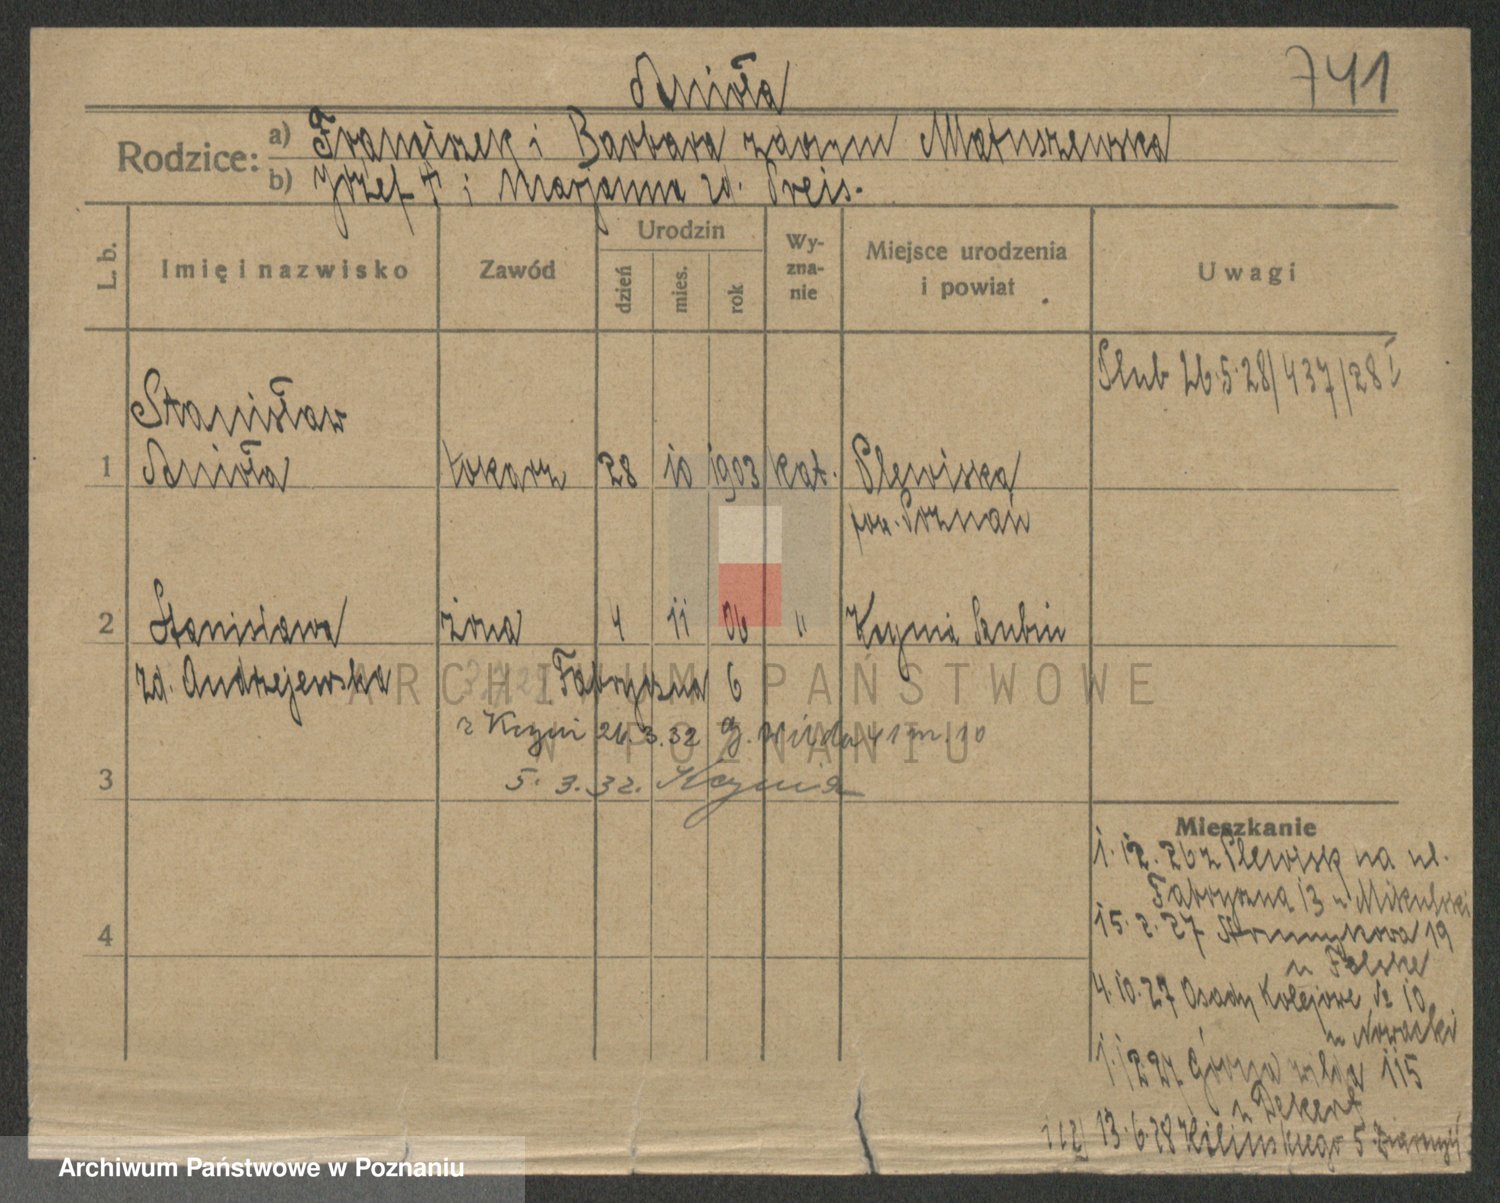 Anioła
741
Rodzice:
a) Franciszek i Barbara zdomu Matuszewska
b) Józef † i Marjanna zd. Preis.
L. b.
Imię i nazwisko
Zawód
Urodzin
dzień
mies.
rok
Wy-
zna-
nie
Miejsce urodzenia
i powiat
Uwagi
Ślub 26.5.28/437/28
Stanisław
1 Anioła tokarz 28 10 1903 kat. Plewiska
pow. Poznań
2 Stanisława żona 4 11 06 " Kcynia Szubin
zd. Andrzejewska
Fabryczna 6
z Kcyni 26.3.32 G. Wilda 41 m. 10
5.3.32. Kcynia
3
4
Mieszkanie
1.12.26 z Plewisk na ul.
Fabryczna 13 u Mikulski
15.2.27 19
u
4.10.27 Osady Kolejowe № 10
u Nowacki
1.12.27 Górna Wilda 115
u Dekert
13.6.28 Kilińskiego 5
ARCHIWUM PAŃSTWOWE
W POZNANIU
Archiwum Państwowe w Poznaniu